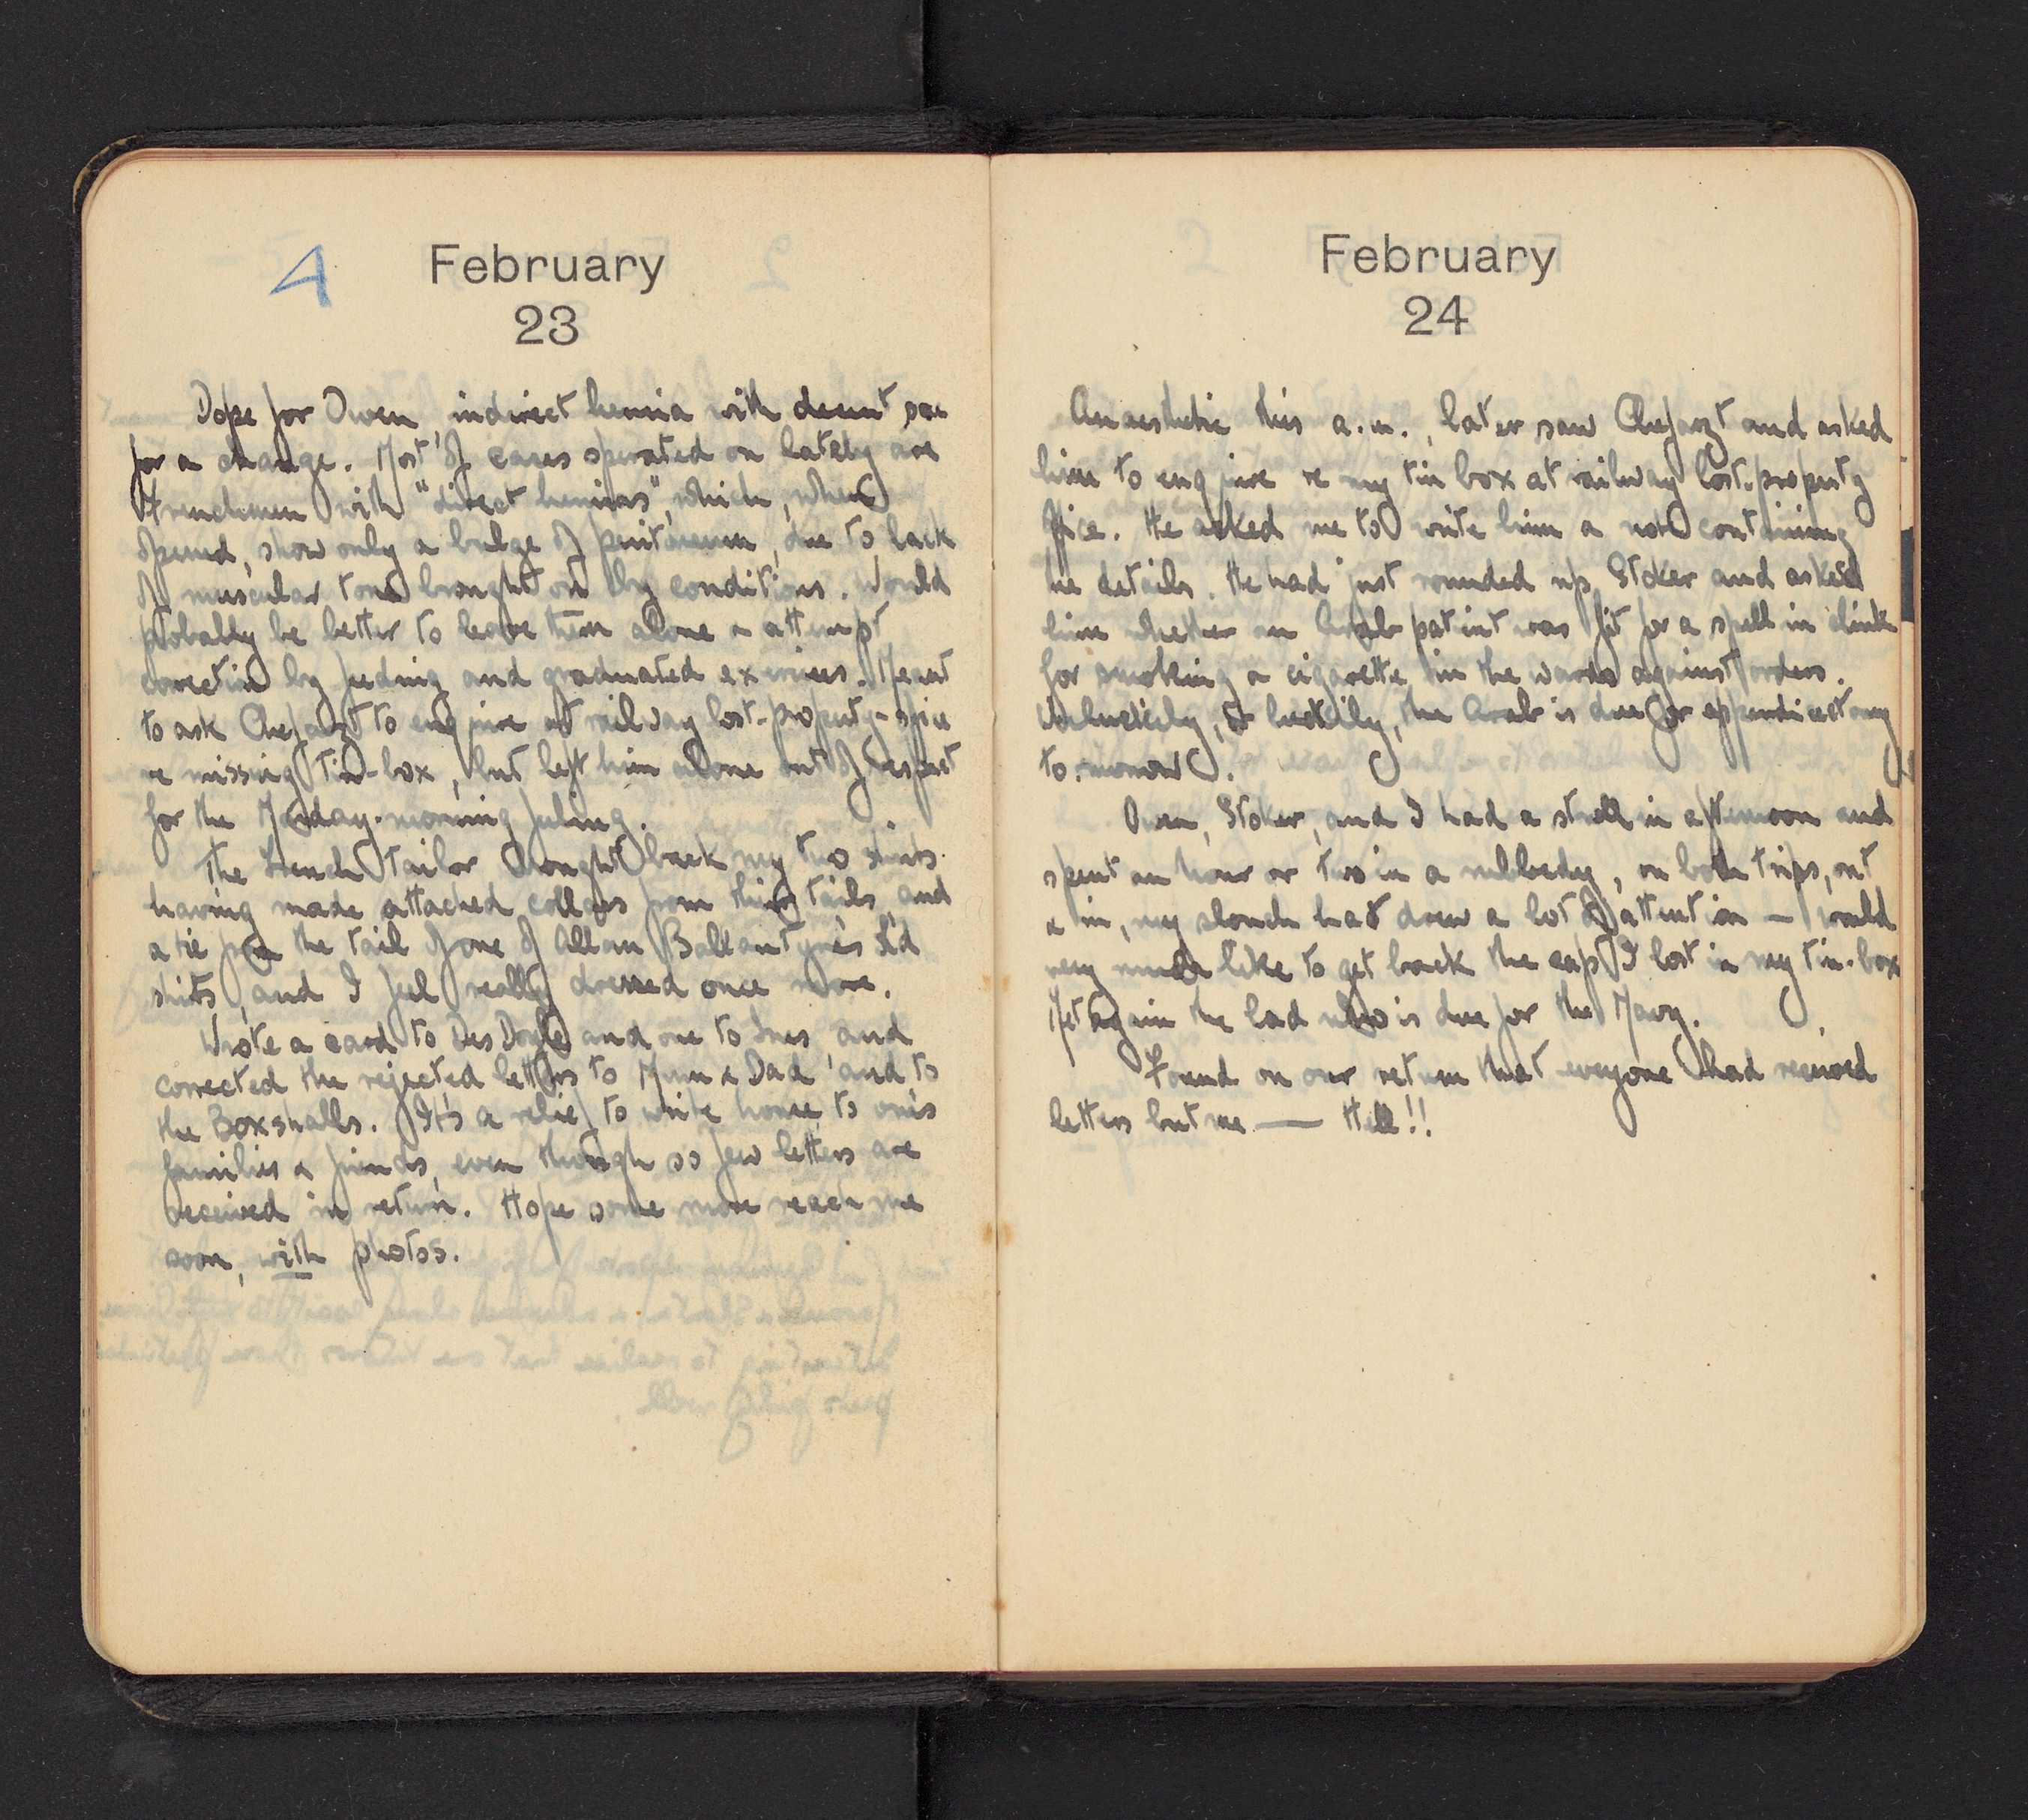 4
February
23
Dope for Owen, indirect hernia with decent sac
for a change. Most of cases operated on lately are
Frenchmen with "direct hernias", which, when
opened, show only a bulge of peritoneum, due to lack
of muscular tone brought on by conditions. Would
probably be better to leave them alone & attempt
correction by feeding and graduated exercises. Meant
to ask to enquire at railway lost-property-office
re missing tin-box, but left him alone out of respect
for the Monday-morning feeling.
The French tailor brought back my two shirts
having made attached collars from their tails, and
a tie from the tail of one of Allan Ballantyne's
shirts, and I feel really dressed once more.
Wrote a card to Des Doyle and one to Ines, and
corrected the rejected letters to Mum & Dad and to
the Boxshalls. It's a relief to write home to one's
families & friends, even though so few letters are
received in return. Hope some more reach me
soon, with photos.
February
24
Anaesthetic this a.m., later saw and asked
him to enquire re my tin box at railway lost-property
office. He asked me to write him a note containing
the details. He had just rounded up Stoker and asked
him whether an Arab patient was fit for a spell in clink
for smoking a cigarette in the wards against orders.
Unluckily, or luckily, the Arab is due for appendicectomy
to-morrow.
Owen, Stoker, and I had a stroll in afternoon and
spent an hour or two in a, on both trips, out
& in, my slouch hat drew a lot of attention — would
very much like to get back the cap I lost in my tin-box
Met again the lad who is due for the Navy.
Found on our return that everyone had received
letters but me — Hell!!